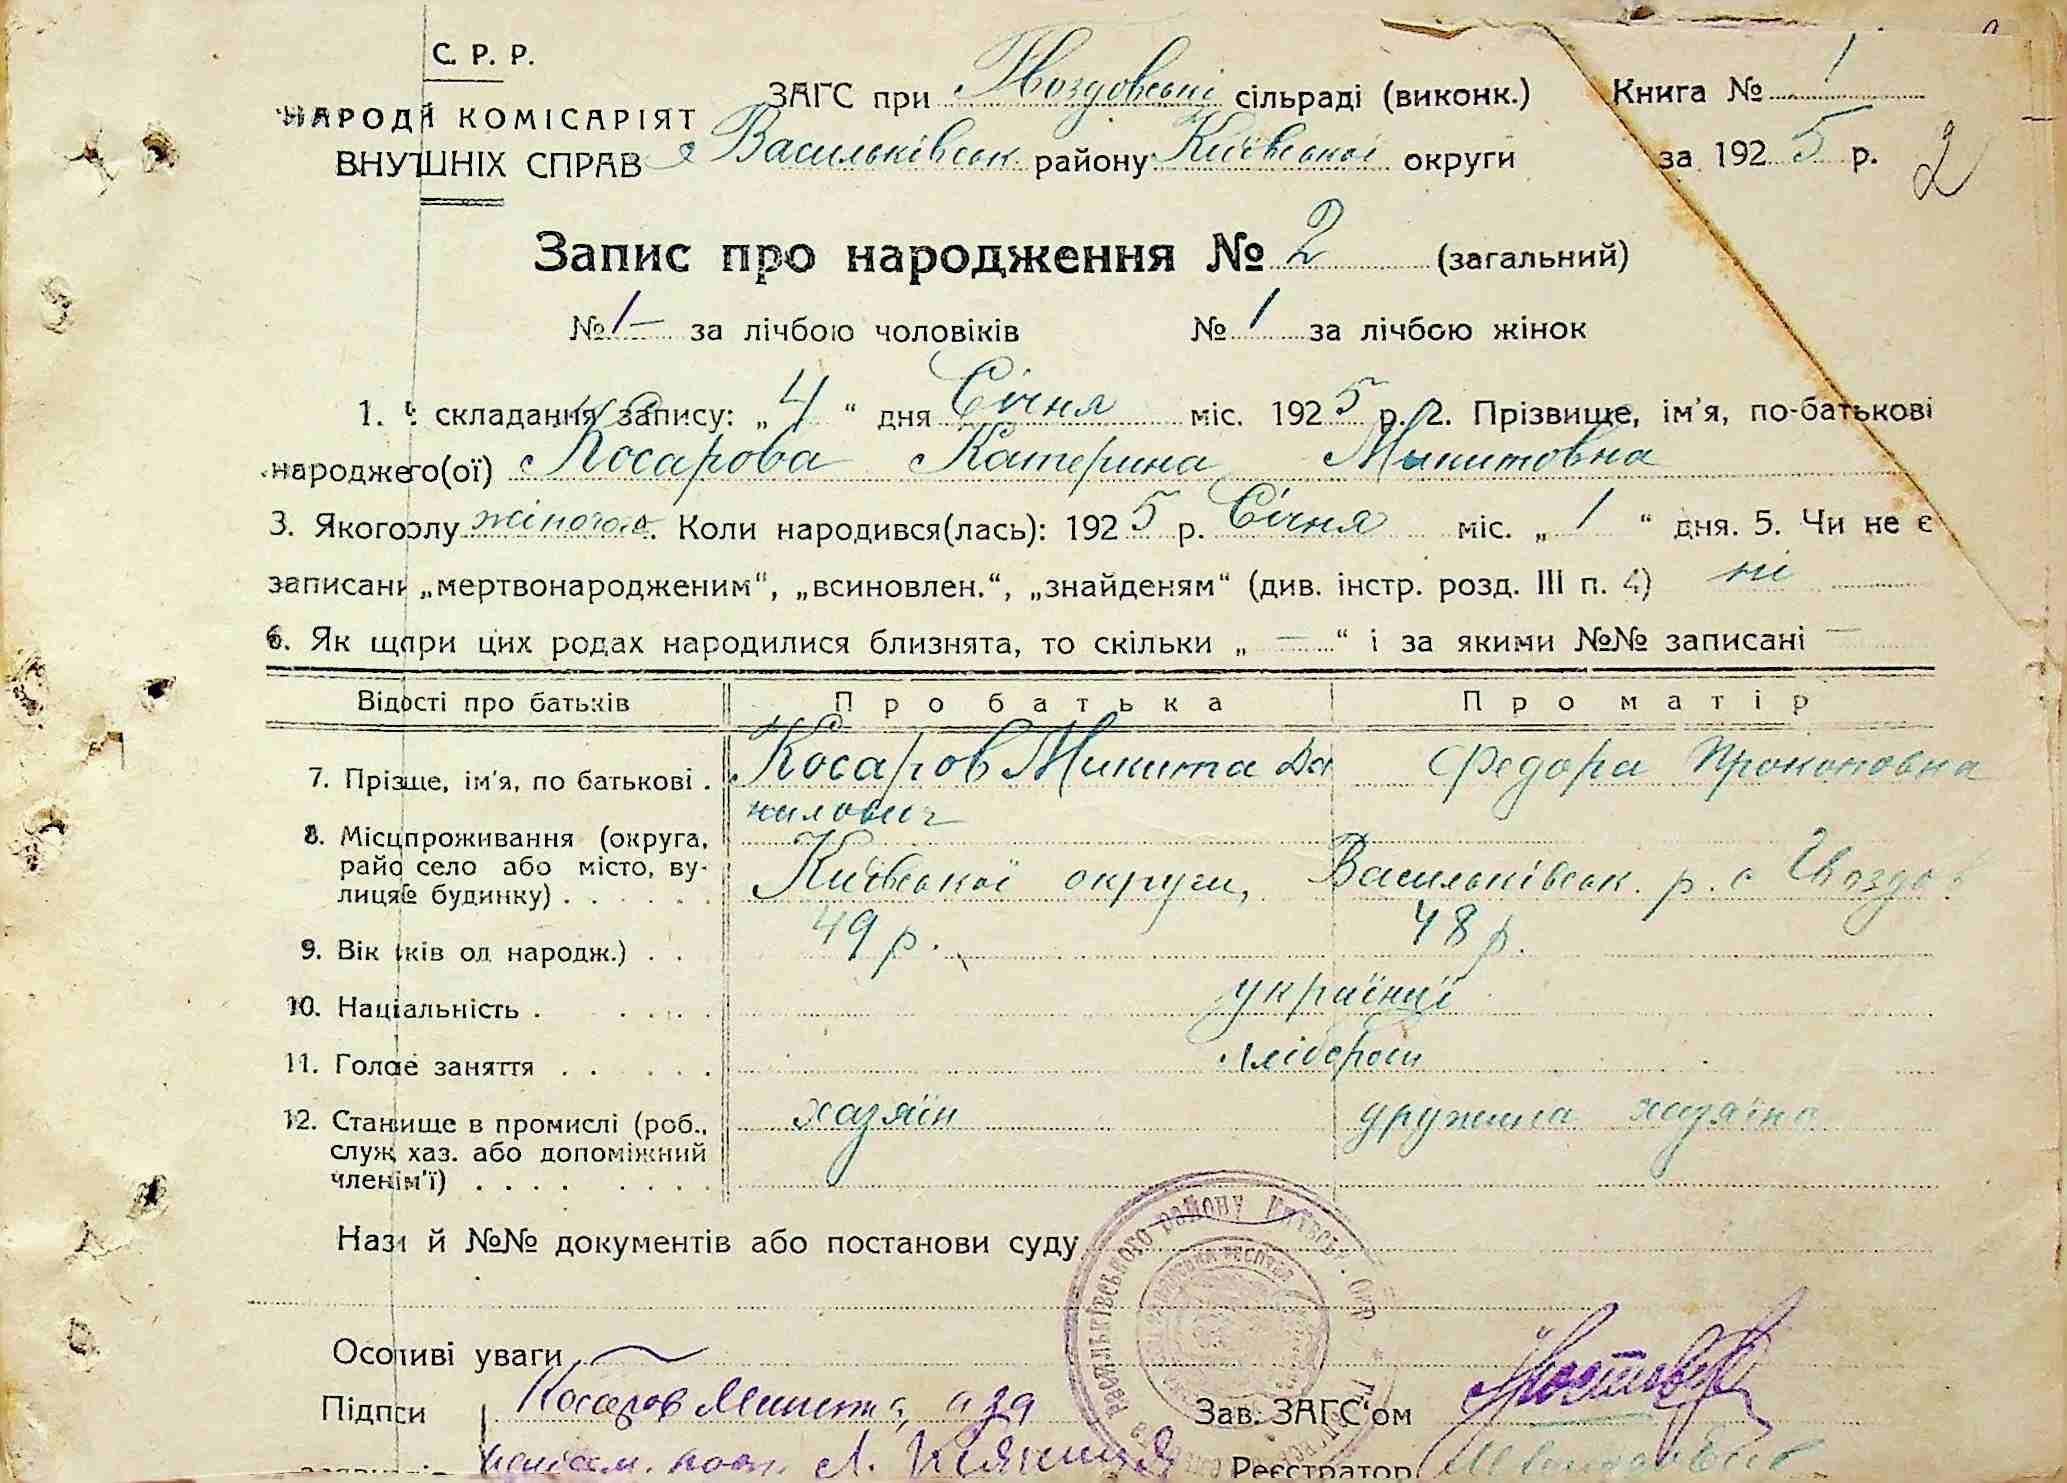 С. Р. Р.
НАРОДН КОМІСАРІЯТ
ВНУТШНІХ СПРАВ
ЗАГС при Гвоздовській сільраді (виконк.) Книга № 1
Васильківськ. району Київської округи за 1925 р. 2
Запис про народження № 2 (загальний)
№ 1 — за лічбою чоловіків № 1 за лічбою жінок
1. складання запису: „4“ дня Січня міс. 1925 р. 2. Прізвище, ім'я, по-батькові
народжего(ої) Косарова Катерина Микитовна
3. Якого олу жіночого. Коли народився(лась): 1925 р. Січня міс. „1“ дня. 5. Чи не є
записани „мертвонародженим“, „всиновлен.“, „знайденям“ (див. інстр. розд. III п. 4) ні
6. Як щ при цих родах народилися близнята, то скільки „—“ і за якими №№ записані —
Відості про батьків Про батька Про матір
7. Прізще, ім'я, по батькові . Косаров Микита Да Федора Прокоповна
нилович
8. Місцпроживання (округа,
райо село або місто, ву-
лиця№ будинку) . Київської округи, Васильківськ. р. с Гвоздов
9. Вік ків од народж.) . . 49 р. 48 р.
10. Націальність . українці
11. Голое заняття . . хлібороби
12. Станище в промислі (роб., хазяїн дружина хазяїна
служ хаз. або допоміжний
член ім'ї) . . . .
Наз й №№ документів або постанови суду
Особливі уваги
Підпси Косаров Микита, а за Зав. ЗАГС'ом
Васильківського району Київськ. Окр.
Реєстратор